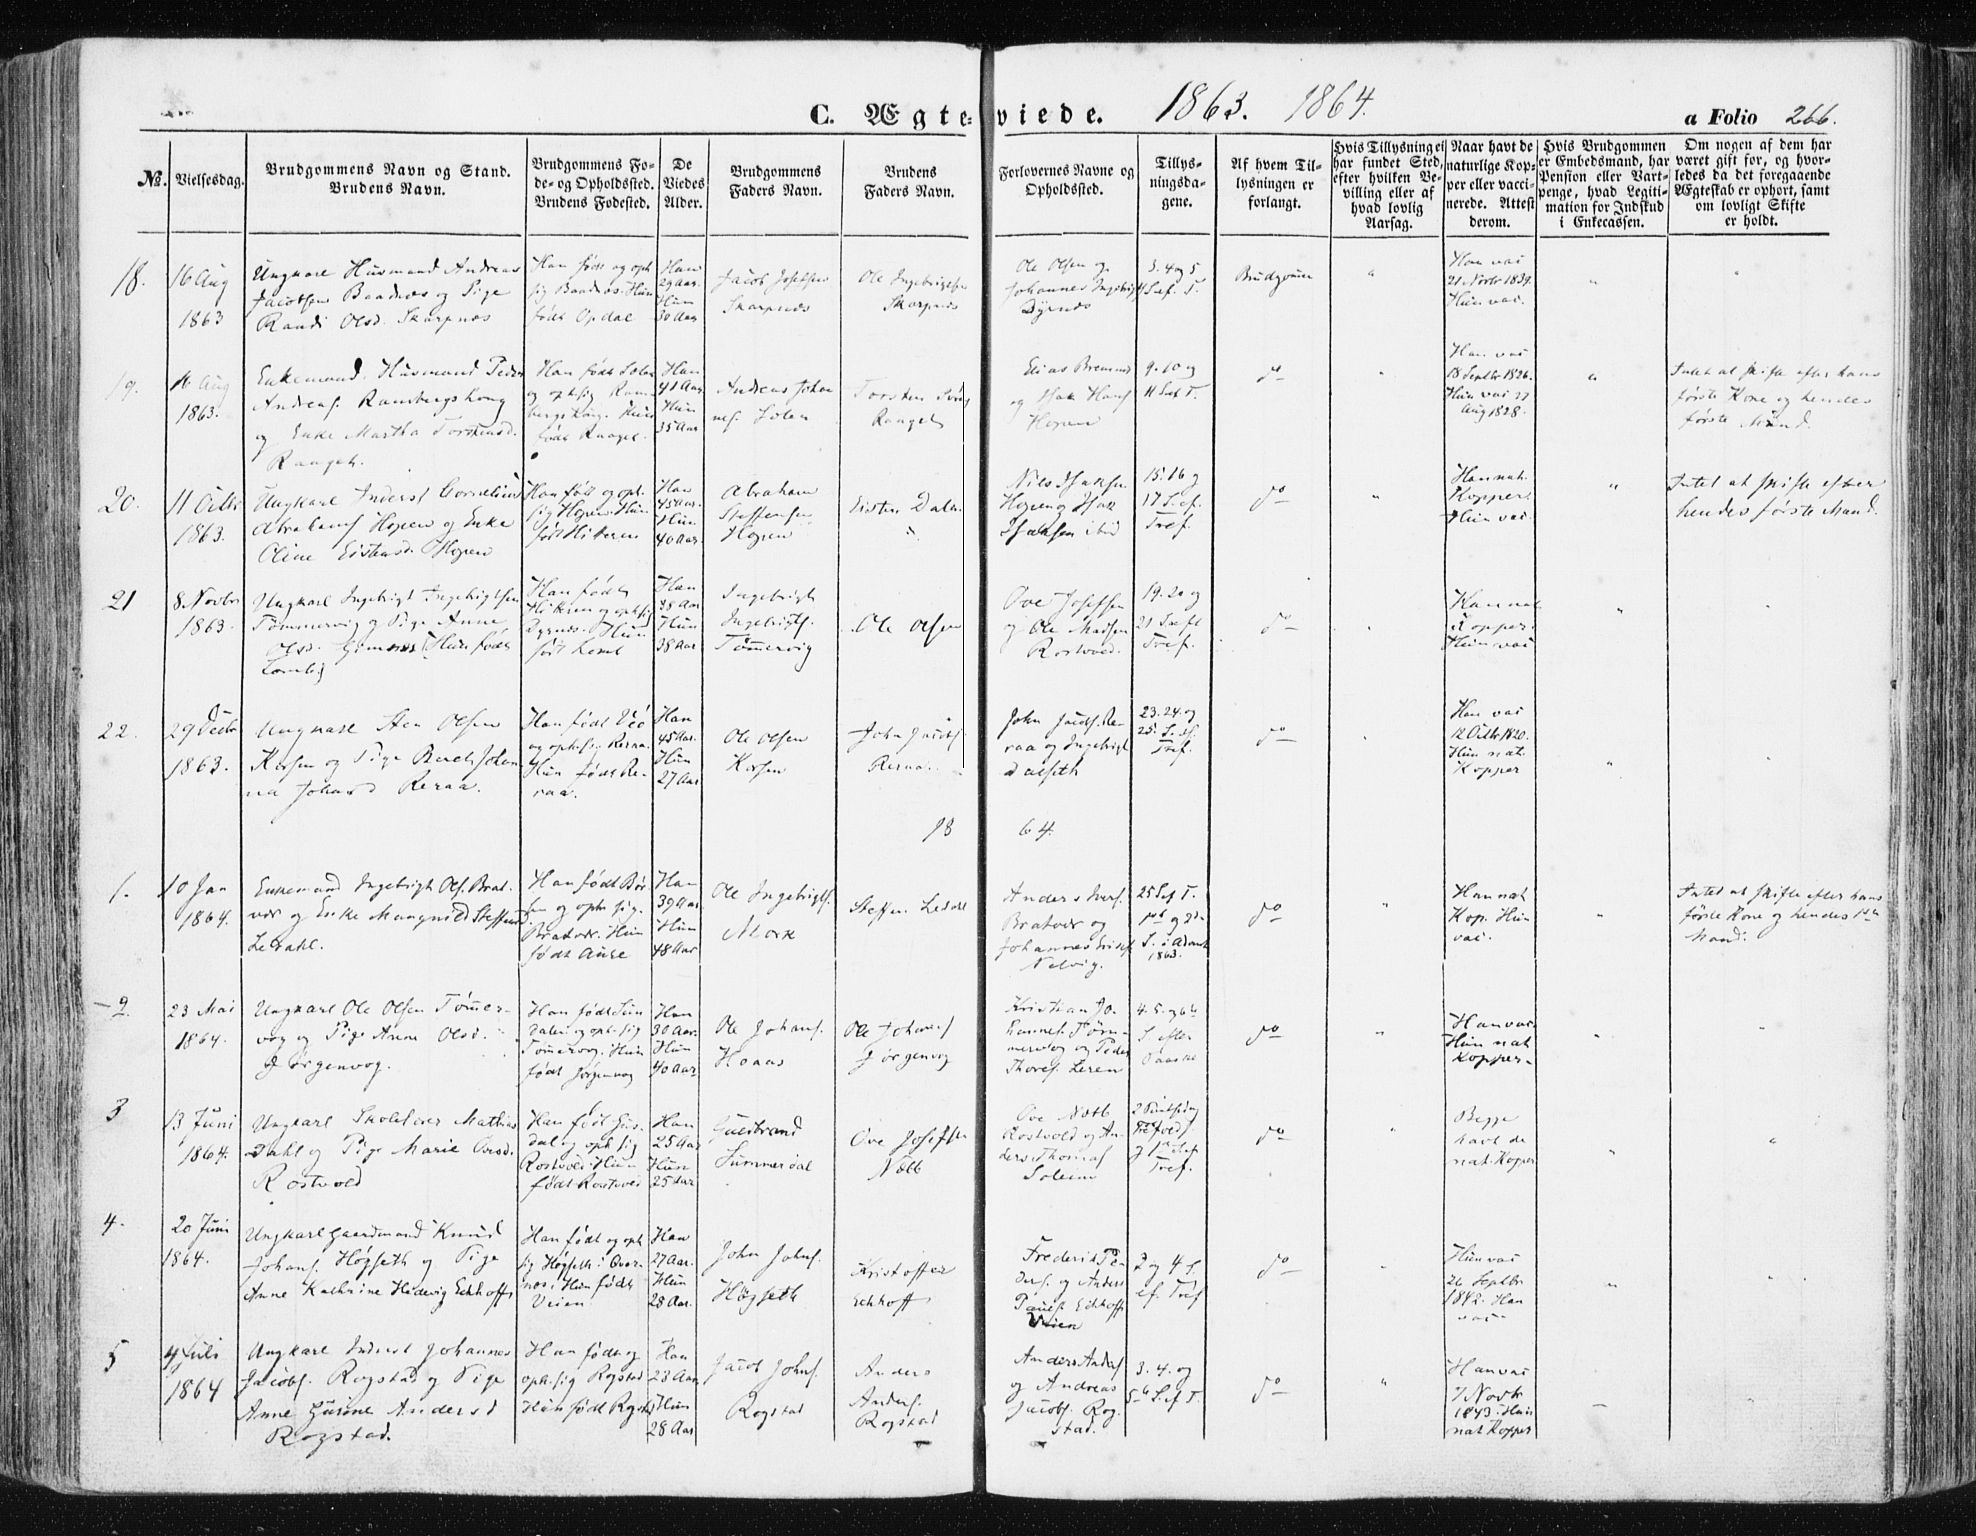 C. Ægteviede. 1863. 1864.
a Folio 266.
No.
Vielsesdag.
Brudgommens Navn og Stand.
Brudens Navn.
Brudgommens Fo-
de- og Opholdssted.
Brudens Fodested.
De
Viedes
Alder.
Brudgommens
Faders Navn.
Brudens
Faders Navn.
Forlovernes Navne og
Opholdssted.
Tillys-
ningsda-
gene.
Af hvem Til-
lysningen er
forlangt.
Hvis Tillysning ei
har fundet Sted,
efter hvilken Be-
villing eller af
hvad lovlig
Aarsag.
Naar havt de
naturlige Kop-
per eller vacci-
nerede. Attest
derom.
Hvis Brudgommen
er Embedsmand, har
Pension eller Vart-
penge, hvad Legiti-
mation for Indskud
i Enkecassen.
Om nogen af dem har
været gift for, og hvor-
ledes da det foregaaende
Ægteskab er ophort, samt
om lovligt Skifte
er holdt.
18.
16 Aug
1863
Ungkarl Husmand Andreas
Jacobsen Baadnæs og Pige
Randi Olsd. Skarpnæs
Han født og oph
sig Baadnæs. Hun
født Opdal
Han
29 Aar.
Hun
30 Aar
Jacob Josefsen
Skarpnæs
Ole Ingebrigtsen
Skarpnæs
Ole Olsen og
Johannes Ingebrigts
Dyrnæs
3. 4 og 5
S. ef. T.
Brudgomen
"
Han vac
21 Novbr 1839.
Hun vac.
"
"
19.
16 Aug
1863.
Enkemand Husmand Peder
Andreas. Ramsbergshaug
og Enke Martha Torstensd.
Raaget.
Han født Solem
og oph sig Rams-
bergshaug. Hun
født Raaget.
Han
41 Aar
Hun
35 Aar
Andreas Johan
nes. Solem
Torsten
Raaget
Elias Bremnes
og Isak Hans
Hopen
9. 10 og
11 S ef T.
do
"
Han vac
18 Septbr 1826.
Hun vac 27
Aug 1828.
"
Intet at skifte efter hans
første Kone og hendes
første Mand.
20.
11 Octbr
1863.
Ungkarl Inderst Cornelius
Abrahams Hopen og Enke
Oline Eistensd. Hopen
Han født og oph.
sig Hopen. Hun
født Hitteren
Han
45 Aar.
Hun
40 Aar.
Abraham
Steffensen
Hopen
Eisten Dalen
"
Nils Isaksen
Hopen og Isak
Isaksen ibid
15. 16 og
17 S. ef.
Tref.
do
"
Han nat.
Kopper.
Hun vac.
"
Intet at skifte efter
hendes første Mand.
21
8 Novbr
1863.
Ungkarl Ingebrigt Ingebrigtsen
Tømmervig og Pige Anne
Olsd. Gimnæs (Hun født
Han født
Hitteren og oph sig
Dyrnæs. Hun
født
Han
38 Aar
Hun
38 Aar
Ingebrigt
Ingebrigts.
Tømmervig
Ole Olsen
Ove Josefsen
og Ole Madsen
Rostvold.
19. 20 og
21 S ef
Tref.
do
"
Han nat
Kopper.
Hun vac
"
"
22.
29 Decbr
1863.
Ungkarl Sten Olsen
Korsen og Pige Bereth Johan
na Johansd Reraa.
Han født Veø
og oph. sig Reraa.
Hun født Re-
raa.
Han
45 Aar.
Hun
27 Aar
Ole Olsen
Korsen
John Jacobs.
Reraa.
John Jacobs. Re-
raa og Ingebrigt
Dalseth
23. 24. og
25. S. ef.
Tref.
do
"
Han vac
12 Octbr 1820.
Hun nat.
Kopper
"
"
1864.
1.
10 Jan
1864.
Enkemand Ingebrigt Ols. Brat-
vær og Enke Mangnild Steffensd
Lesdahl.
Han født Bør-
sen og oph. sig
Bratvær. Hun
født Aure
Han
39 Aar
Hun
48 Aar
Ole Ingebrigts.
Mork
Steffen Lesdal
Anders Ivers.
Bratvær og
Johannes
Nelvig.
25 S ef T.
1ste og 2den
S. i Advent
1863.
do
"
Han nat
Kop. Hun
vac.
"
Intet at skifte efter hans
første Kone og hendes 1ste
Mand.
2.
23 Mai
1864.
Ungkarl Ole Olsen Tømmer-
vog og Pige Anne Olsd.
Jørgenvog.
Han født Sun
dalen og oph. sig
Tømmervog. Hun
født Jørgenvog
Han
30 Aar.
Hun
40 Aar
Ole Johans.
Hoaas
Ole Johans
Jørgenvog
Kristian Jo-
hannes. Tøm-
mervog og Peder
Thores. Leren
4. 5. og 6te
S. efter
Paaske
do
"
Han vac.
Hun nat
Kopper.
"
"
3
13 Juni
1864.
Ungkarl Skolelærer Mathias
Dahl og Pige Marie Ovesd.
Rostvold
Han født
dal og oph sig
Rostvold. Hun
født Rostvold
Han
25 Aar
Hun
25 Aar
Guldbrand
Summerdal
Ove Josefsen
Næbb
Ove Næbb
Rostvold og An-
ders Thomas
Soleim
2 Pintsedag
og 1ste S ef
Tref.
do
"
Begge
havt de
nat. Kopper
"
"
4.
20 Juni
1864.
Ungkarl Gaardmand Knud
Johans. Høgseth og Pige
Anne Kathrine Hedevig Eckhoff
Han født og oph
sig Høgseth i Øver-
næs. Hun født
Veien
Han
27 Aar.
Hun
28 Aar.
John Johns.
Høgseth
Kristoffer
Eckhoff
Frederik Pe-
ders. og Anders
Pauls. Eckhoff
Veien
2 og 4 S.
ef. Tref
do
Hun vac
26 Septbr
1842. Han
vac.
"
"
5
4 Juli
1864
Ungkarl Inderst Johannes
Jacobs. Rogstad og Pige
Anne Gurine Andersd
Rogstad.
Han født og
oph. sig Rogstad
Hun født Rogstad
Han
23 Aar
Hun
28 Aar
Jacob Johns.
Rogstad
Anders
Anders.
Rogstad
Anders Anders
og Andreas
Jacobs. Rog
stad.
3. 4. og
5te S. ef T.
do
"
Han vac
7 Novbr
1843. Hun
nat Kopper
"
"